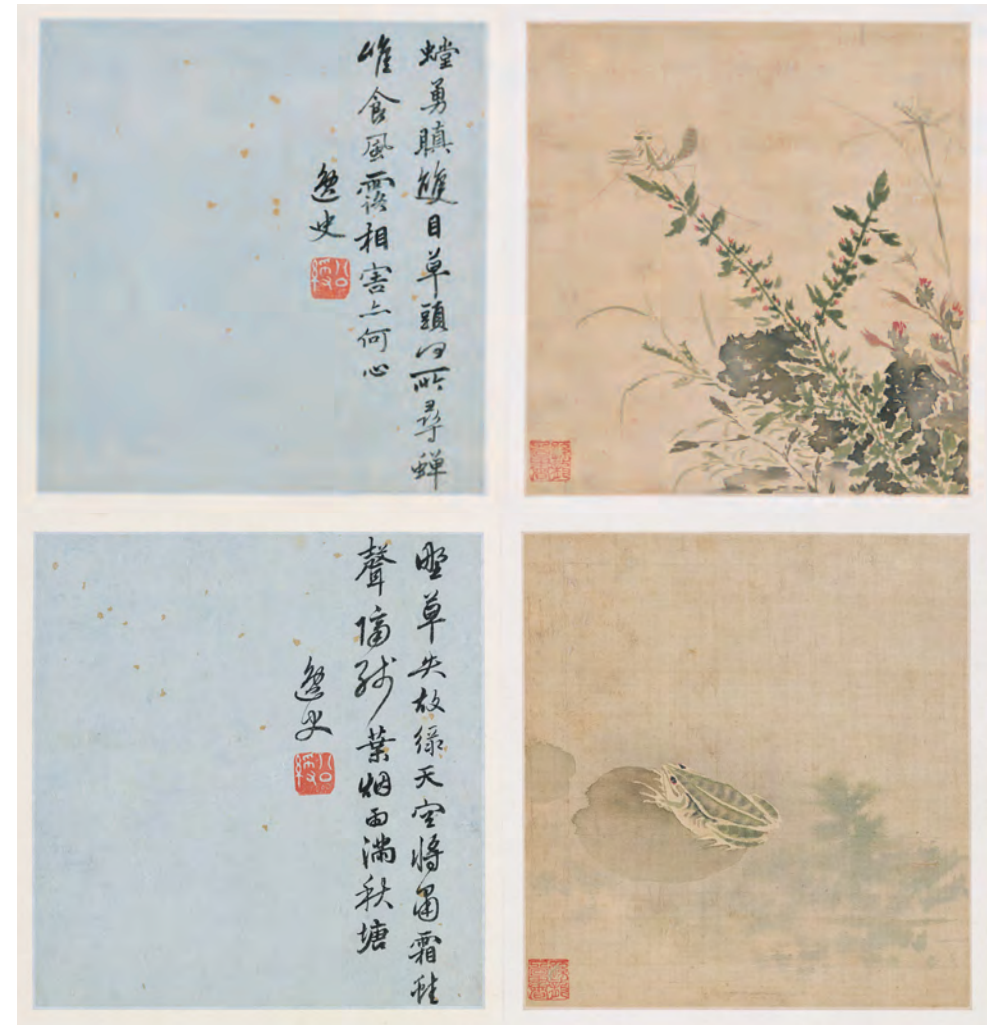 螳勇瞋雙目草頭何所尋蟬
唯食風露相害亦何心
逸史
野草失故綠天空將肅霜蛙
聲隔殘葉烟雨滿秋塘
逸史